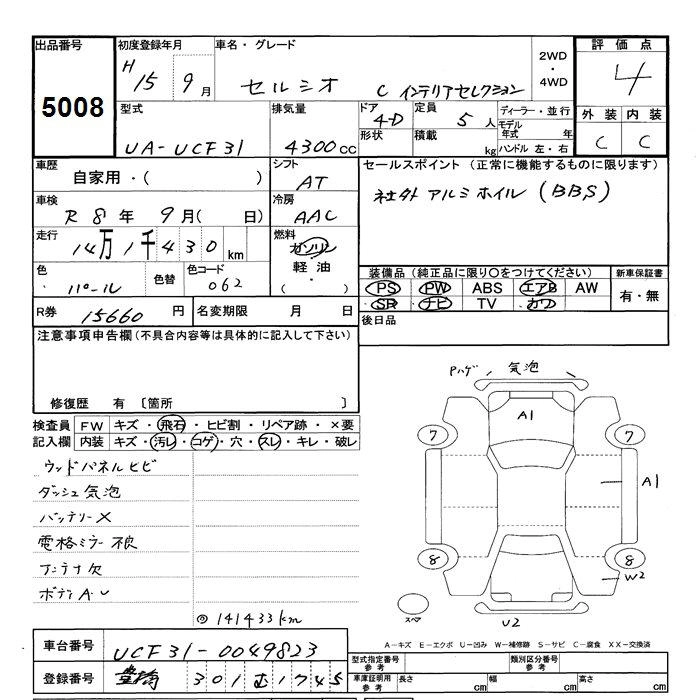 出品番号 初度登録年月 車名・グレード 2WD・4WD 評価点
5008 H15 9月 セルシオ C インテリアセレクション 4
型式 排気量 ドア 定員 ディーラー・並行 外装 内装
UA-UCF31 4300cc 4-D 5人 モデル年式 年 C C
形状 積載 kg ハンドル 左・右
車歴 シフト セールスポイント (正常に機能するものに限ります)
自家用・( ) AT 社外アルミホイル (BBS)
車検 冷房
R 8年 9月( 日) AAC
走行 燃料
14万1千430km ガソリン
軽油
・( )
色 色替 色コード 装備品(純正品に限り○をつけてください) 新車保証書
パール 062 PS PW ABS エアB AW 有・無
SR ナビ TV カワ
R券 15660円 名変期限 月 日 後日品
注意事項申告欄(不具合内容等は具体的に記入して下さい)
修復歴 有 〔箇所 〕
検査員 FW キズ・飛石・ヒビ割・リペア跡・×要
記入欄 内装 キズ・汚レ・コゲ・穴・スレ・キレ・破レ
ウッドパネルヒビ
ダッシュ気泡
バッテリーX
電格ミラー不良
アンテナ欠
ボディA・U
◎141433km
Pハゲ 気泡
A1
7 7
A1
8 8
W2
スペア U2
A-キズ E-エクボ U-凹み W-補修跡 S-サビ C-腐食 XX-交換済
車台番号 UCF31-0049823 型式指定番号 参考 類別区分番号 参考
登録番号 豊橋 301 1745 車庫証明用 参考 長さ cm 幅 cm 高さ cm